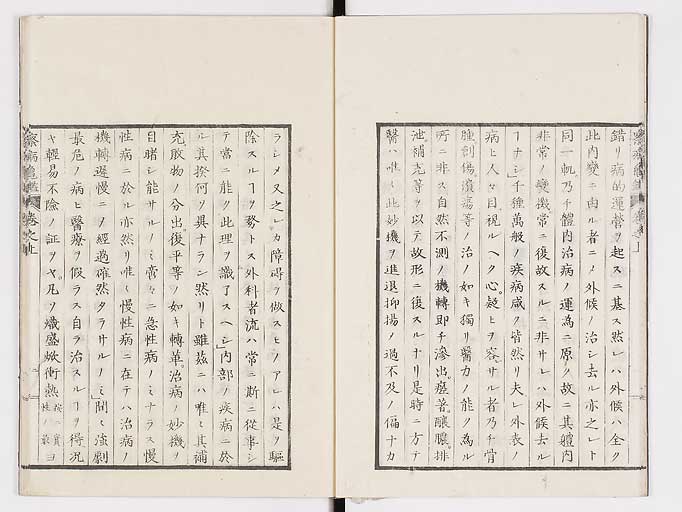 錯リ病的運營ヲ起スニ基ス然レハ外候ハ全ク
此内變ニ由ル者ニメ外候ノ治シ去ル亦之レト
同一軌乃チ體内治病ノ運為ニ原ク故ニ其體内
非常ノ變機常ニ復故スルニ非サレハ外候去ル
ヿナシ千種萬般ノ疾病咸ク皆然リ夫レ外表ノ
病ヒ人々目視ルヘク心疑ヒヲ容サル者乃チ骨
腫創傷潰瘍等ノ治ノ如キ獨リ醫力ノ能ク為ル
所ニ非ス自然不測ノ機轉即チ滲出癒著釀膿排
泄補充等ヲ以テ故形ニ復スルナリ是時ニ方テ
醫ハ唯々此妙機ヲ進退抑揚ノ過不及ノ偏ナカ
ラシメ又之レカ障碍ヲ做スヒノアレハ是ヲ驅
除スルヿヲ務トス外科者流ハ常ニ斯ニ從事シ
テ當ニ能ク此理ヲ識了スヘシ内部ノ疾病ニ於
ル其揆何ソ異ナラン然リト雖茲ニハ唯々其補
充、膠物ノ分出、復平等ノ如キ轉革治病ノ妙機ヲ
目睹シ能サルノミ啻々ニ急性病ノミナラス慢
性病ニ於ル亦然リ唯々慢性病ニ在テハ治病ノ
機轉遅慢ニノ經過確然タラサルノミ間々濱劇
最危ノ病ヒ醫療ヲ假ラス自ラ治スルヿヲ得況
ヤ輕易不險ノ証ヲヤ、凡ソ熾盛焮衝熱